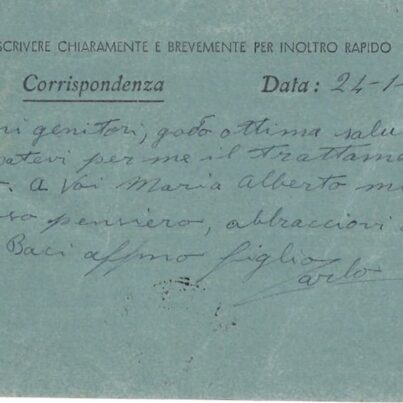 SCRIVERE CHIARAMENTE E BREVEMENTE PER INOLTRO RAPIDO
Corrispondenza Data: 24-1-
ri genitori, godo ottima salu
atevi per me il trattame
A Voi Maria Alberto mi
so pensiero, abbracciovi
Baci affmo figlio
Carlo